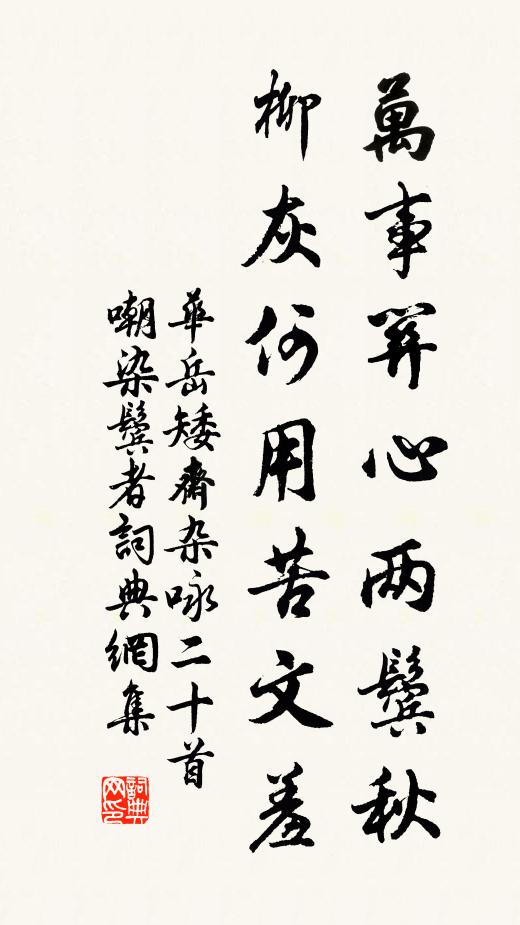 萬事關心两鬓秋
柳灰何用苦文羞
華岳矮齋杂咏二十首
嘲染鬓者詞典網集
詞典
网印